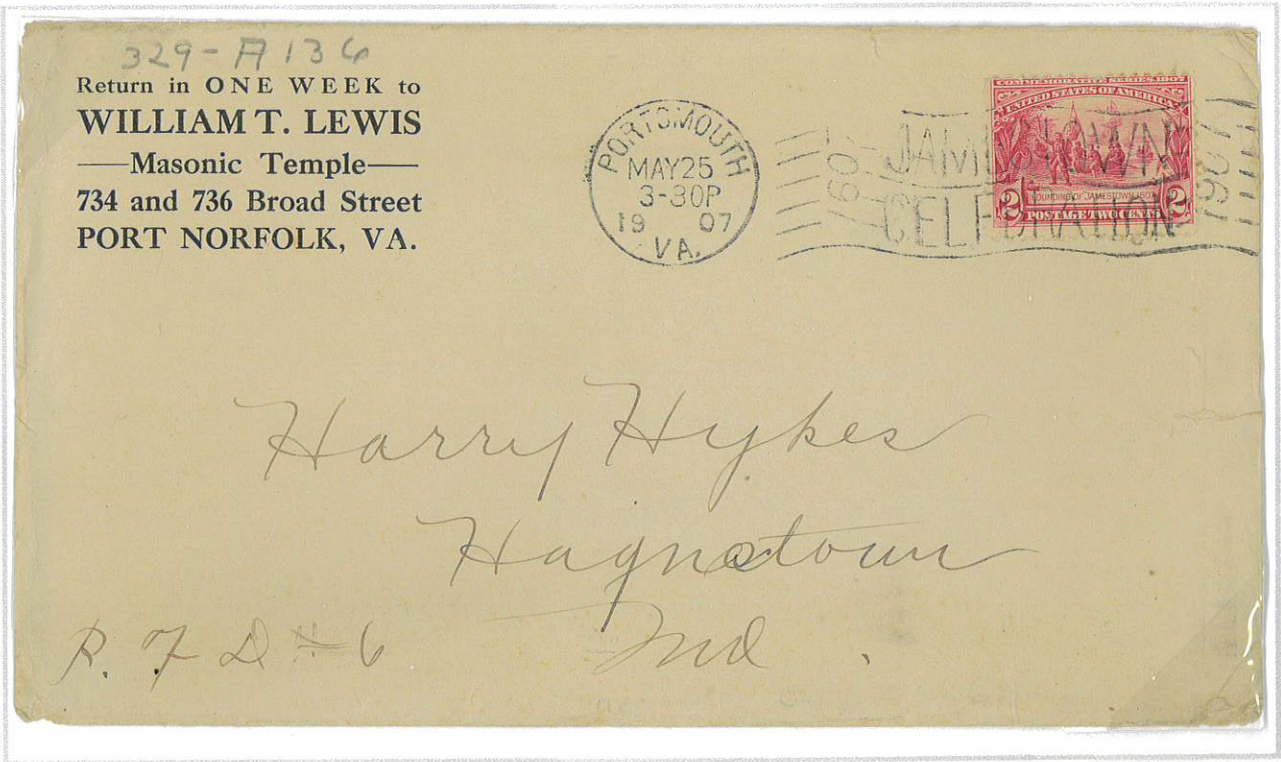 329-A136
Return in ONE WEEK to
WILLIAM T. LEWIS
—Masonic Temple—
734 and 736 Broad Street
PORT NORFOLK, VA.
PORTSMOUTH
MAY 25
3-30P
19 07
VA.
1607 JAMESTOWN 1907
CELEBRATION
COMMEMORATIVE SERIES, 1907
UNITED STATES OF AMERICA
FOUNDING OF JAMESTOWN, 1607
2 POSTAGE TWO CENTS 2
Harry Hykes
Hagnstown
R. F D # 6 Md.